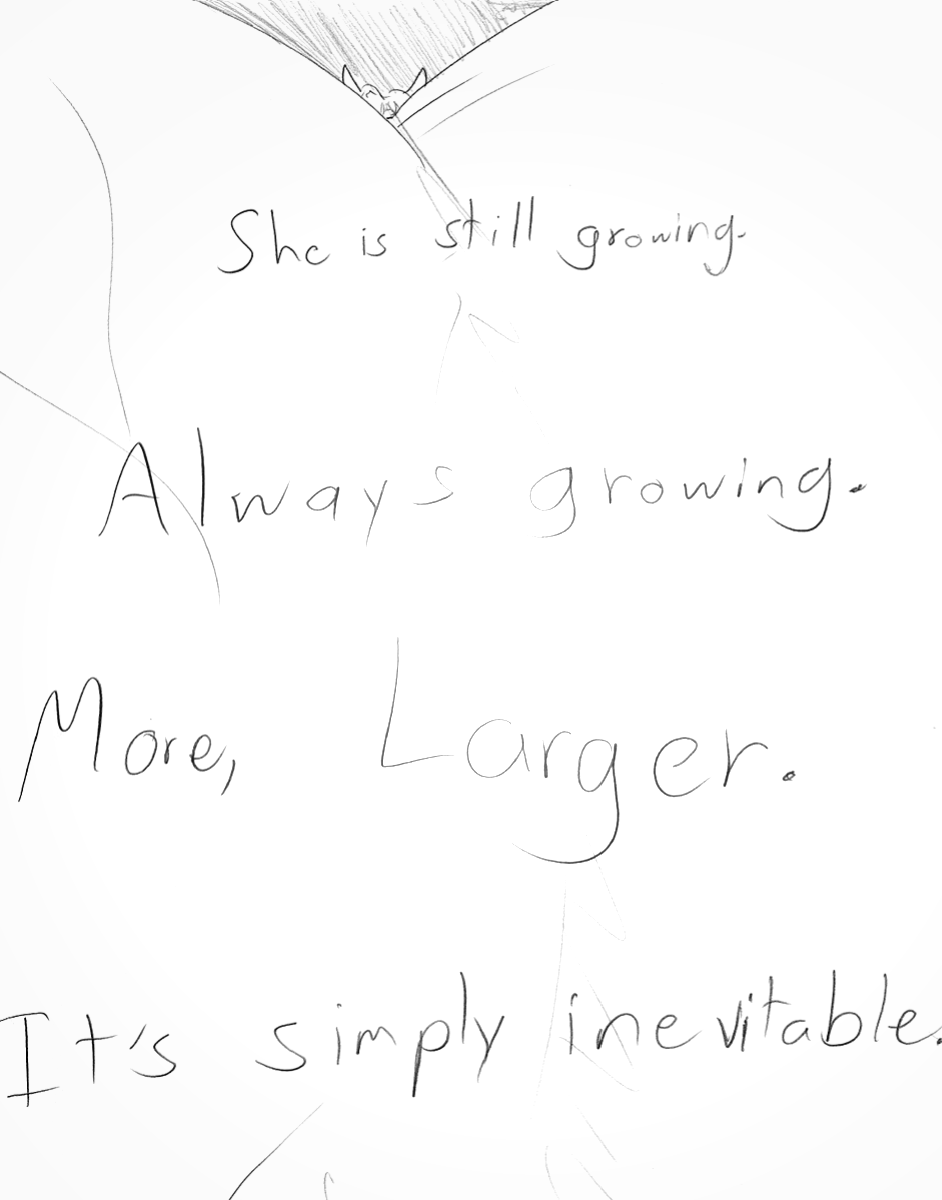 She is still growing.
Always growing.
More, Larger.
It's simply inevitable.